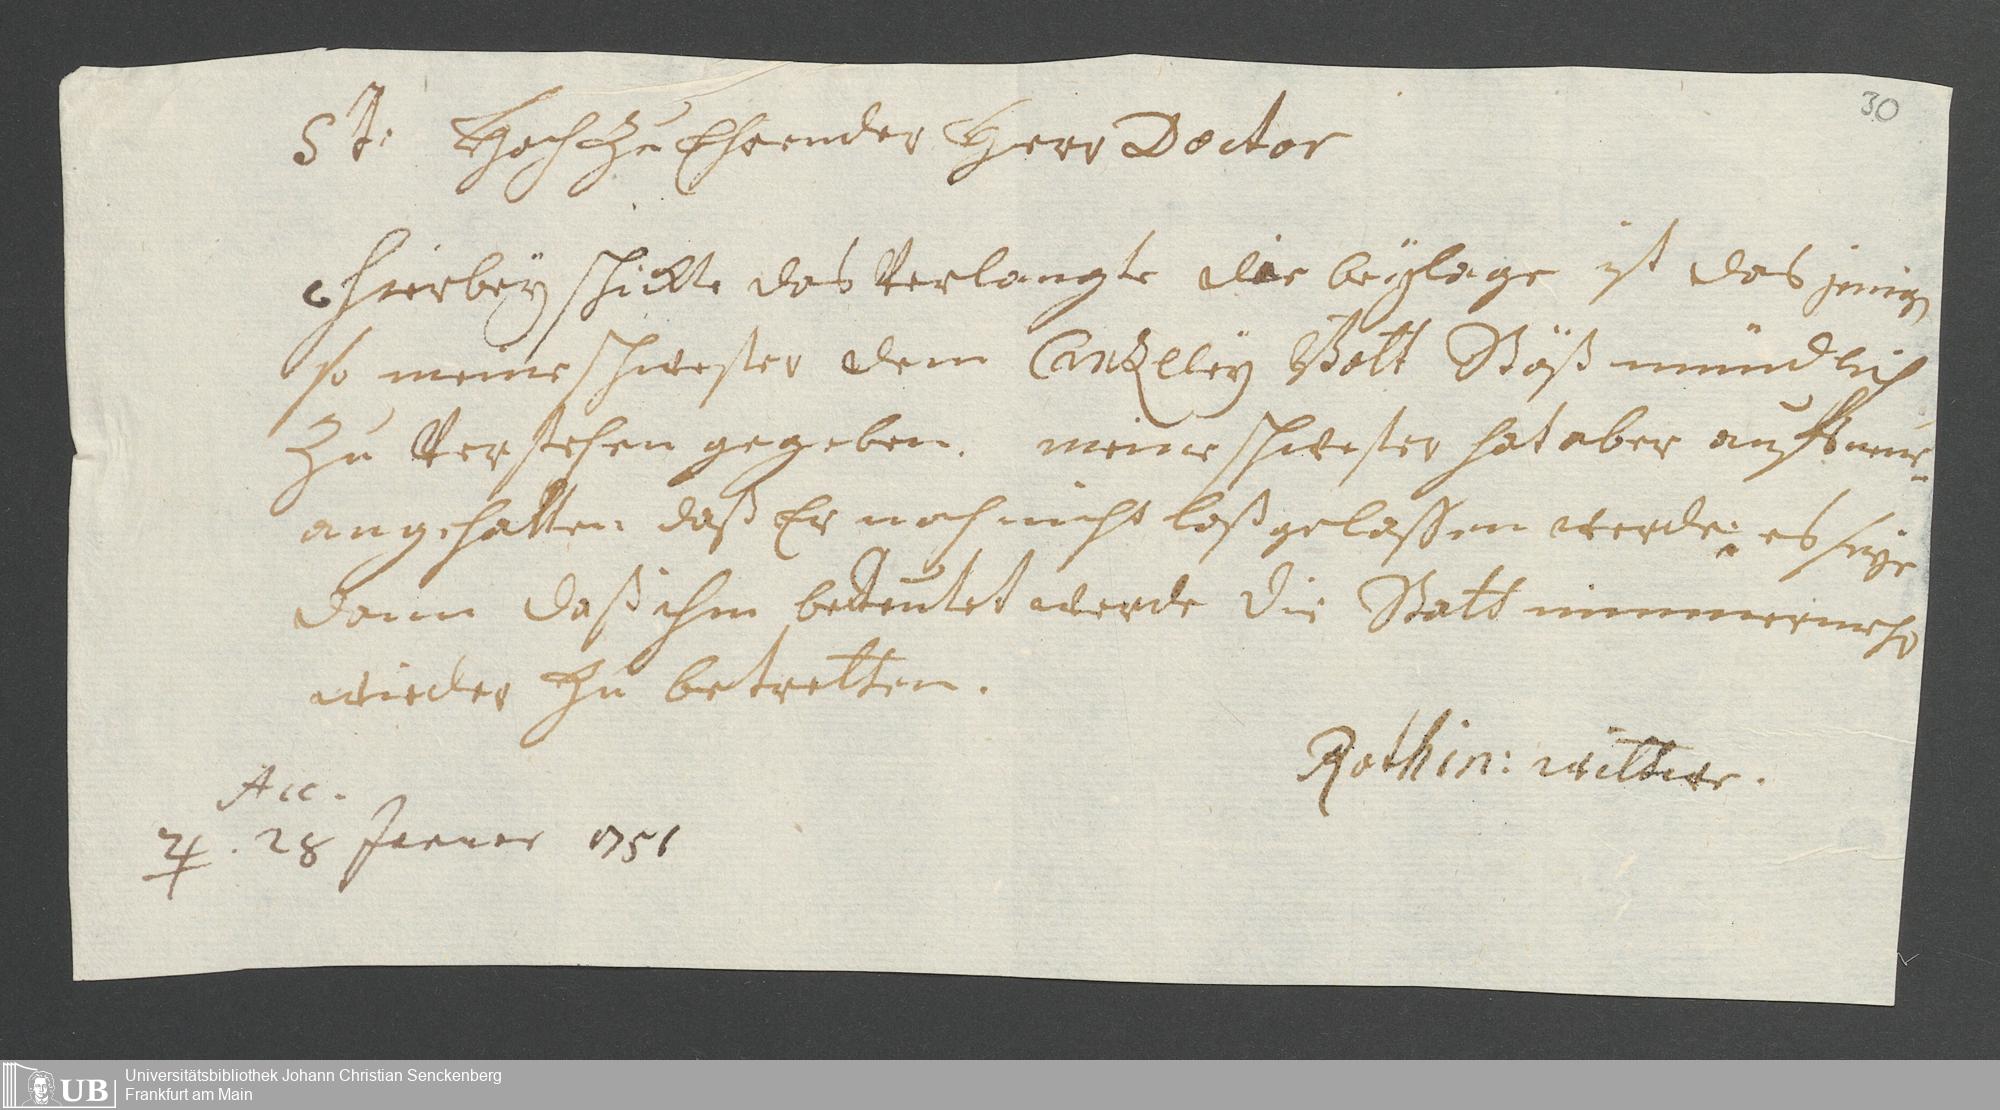 30
S T. HochZuEhrender Herr Doctor
hierbeÿ schicke das Verlangte die beÿlage ist das jenig
so meine schwester dem Cantzelleÿ Bott Böß mündlich
Zu Verstehen gegeben. meine schwester hat aber auffs neue
angehalten daß Er noch nicht loßgelassen werde: es seÿe
dann daß ihm bedeutet werde die Statt nimmermehr
wieder Zu betretten.
Rothin: wittwe.
Acc.
♃. 28 Jenner 1751
UB Universitätsbibliothek Johann Christian Senckenberg
Frankfurt am Main